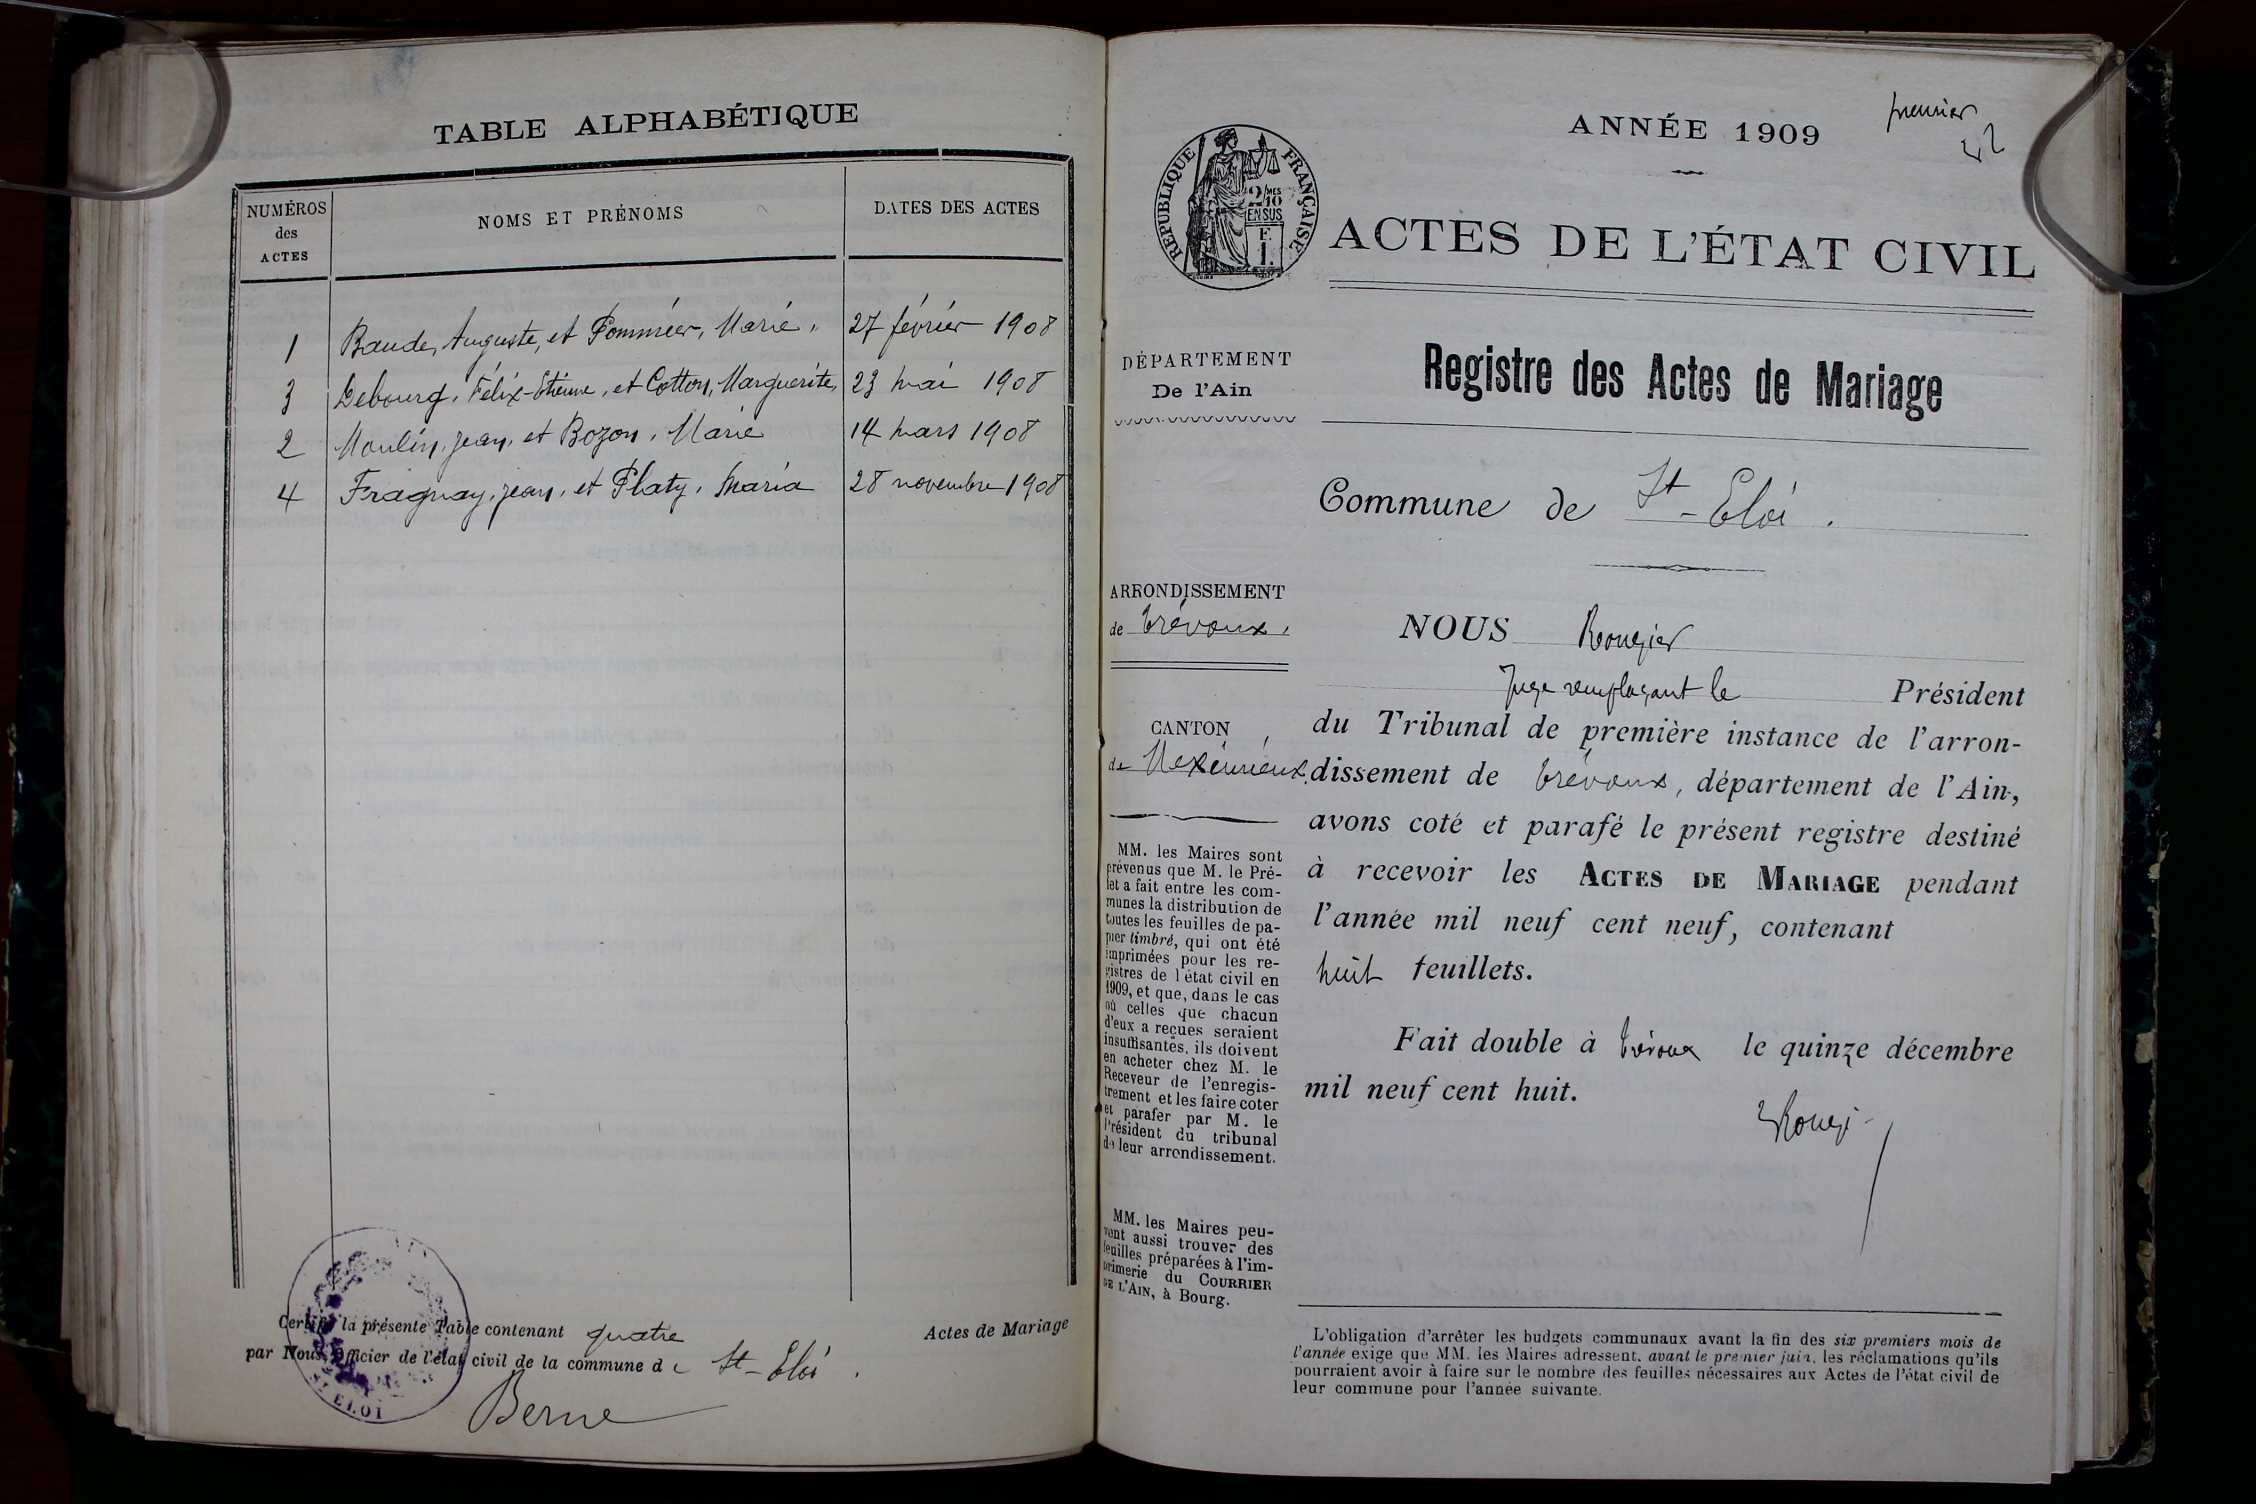 TABLE ALPHABÉTIQUE
NUMÉROS
des
ACTES
NOMS ET PRÉNOMS
DATES DES ACTES
1 Baude, Auguste, et Pommier, Marie, 27 février 1908
3 Debourg, Félix-Etienne, et Cotton, Marguerite, 23 mai 1908
2 Moulin, Jean, et Bozon, Marie 14 mars 1908
4 Fragnay, Jean, et Platy, Maria 28 novembre 1908
Certifié la présente Table contenant quatre Actes de Mariage
par Nous, Officier de l'état civil de la commune de St-Eloi.
Berne
ST ELOI
premier
ANNÉE 1909
RÉPUBLIQUE FRANÇAISE
2/10 MES
EN SUS
F.
1.
ACTES DE L'ÉTAT CIVIL
DÉPARTEMENT
De l'Ain
Registre des Actes de Mariage
Commune de St-Eloi.
ARRONDISSEMENT
de Trévoux.
CANTON
de Meximieux.
MM. les Maires sont
prévenus que M. le Pré-
fet a fait entre les com-
munes la distribution de
toutes les feuilles de pa-
pier timbré, qui ont été
imprimées pour les re-
gistres de l'état civil en
1909, et que, dans le cas
où celles que chacun
d'eux a reçues seraient
insuffisantes, ils doivent
en acheter chez M. le
Receveur de l'enregis-
trement et les faire coter
et parafer par M. le
Président du tribunal
de leur arrondissement.
MM. les Maires peu-
vent aussi trouver des
feuilles préparées à l'im-
primerie du COURRIER
DE L'AIN, à Bourg.
NOUS Rougier
Juge remplaçant le Président
du Tribunal de première instance de l'arron-
dissement de Trévoux, département de l'Ain,
avons coté et parafé le présent registre destiné
à recevoir les ACTES DE MARIAGE pendant
l'année mil neuf cent neuf, contenant
huit feuillets.
Fait double à Trévoux le quinze décembre
mil neuf cent huit.
L'obligation d'arrêter les budgets communaux avant la fin des six premiers mois de
l'année exige que MM. les Maires adressent, avant le premier juin, les réclamations qu'ils
pourraient avoir à faire sur le nombre des feuilles nécessaires aux Actes de l'état civil de
leur commune pour l'année suivante.